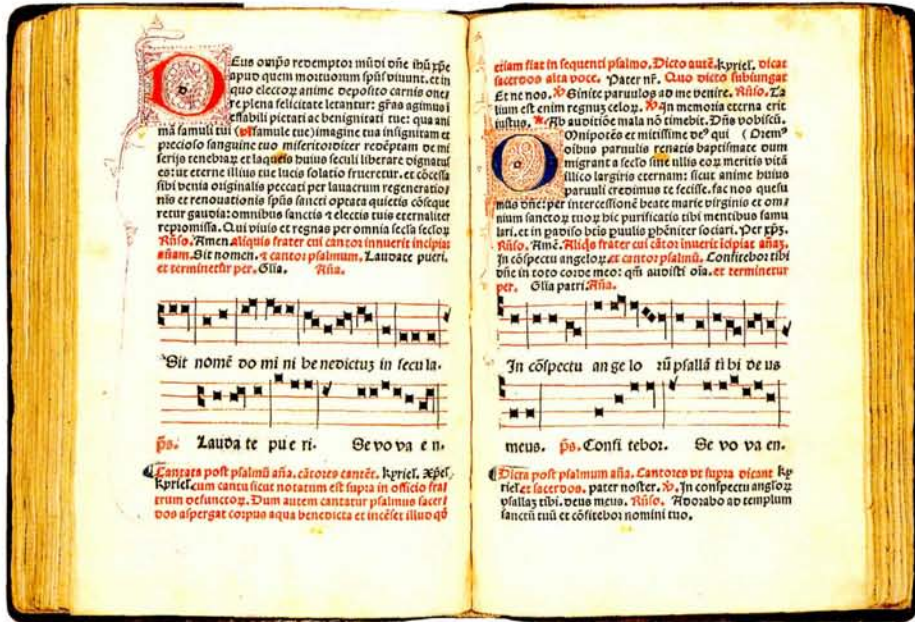 DEus omp̄s redemptor mūdi dn̄e ihū xp̄e
apud quem mortuorum sp̄us viuunt. et in
quo electoꝝ anime deposito carnis one
re plena felicitate letantur: gr̄as agimus i
effabili pietati ac benignitati tue: qua ani
mā famuli tui (vl̓ famule tue) imagine tua insignitam et
precioso sanguine tuo misericorditer redēptam de mi
serijs tenebraꝝ et laqueis huius seculi liberare dignatus
es: ut eterne illius tue lucis solatio frueretur. et cōcessa
sibi venia originalis peccati per lauacrum regeneratio
nis et renouationis sp̄us sancti optata quietis cōseque
retur gaudia: omnibus sanctis ⁊ electis tuis eternaliter
repromissa. Qui viuis et regnas per omnia secła secłoꝝ
Rn̄so. Amen. aliquis frater cui cantor innuerit incipiat
an̄am. Sit nomen. ⁊ cantor psalmum. Laudate pueri.
et terminetur per. Gl̄ia. An̄a.
Sit nomē do mi ni be nedictuꝫ in secu la.
p̄s. Lauda te pue ri. Se vo va e n.
Cantata post psalmū an̄a. cātores cantēt. kyriel̓. xp̄el̓
kyriel̓ cum cantu sicut notatum est supra in officio fra
trum defunctoꝝ. Dum autem cantatur psalmus sacer
dos aspergat corpus aqua benedicta et incēset illud qd̄
etiam fiat in sequenti psalmo. Dicto autē. kyriel̓. dicat
sacerdos alta voce. Pater nr̄. Quo dicto subiungat
Et ne nos. ℣ Sinite paruulos ad me venire. Rn̄so. Ta
lium est enim regnuꝫ celoꝝ. ℣ In memoria eterna erit
iustus. Ab auditiōe mala nō timebit. Dn̄s vobiscū.
OMnipotēs et mitissime de⁹ qui (Orem⁹
oibus paruulis renatis baptismate dum
migrant a secło sine ullis eoꝝ meritis vitā
illico largiris eternam: sicut anime huius
paruuli credimus te fecisse. fac nos quesu
mus dn̄e: per intercessionē beate marie virginis et om
nium sanctoꝝ tuoꝝ hic purificatis tibi mentibus famu
lari. et in padiso btis puulis phēniter sociari. Per xp̄ꝫ.
Rn̄so. Amē. Aliq̄s frater cui cātor inuerit īcipiat an̄aꝫ.
In cōspectu angeloꝝ. et cantor psalmū. Confitebor tibi
dn̄e in toto corde meo: qm̄ audisti oīa. et terminetur
per. Gl̄ia patri. An̄a.
In cōspectu an ge lo rū psallā ti bi de us
meus. p̄s. Confi tebor. Se vo va en.
Dicta post psalmum an̄a. Cantores vt supra dicant ky
riel̓ et sacerdos. pater noster. ℣. In conspectu angl̄oꝝ
psallaꝫ tibi. deus meus. Rn̄so. Adorabo ad templum
sanctū tuū et cōfitebor nomini tuo.